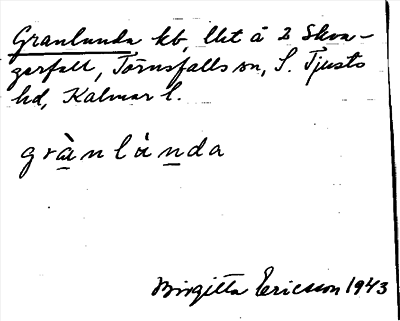 Granlunda kb, lht å 2 Skva-
gerfall, Törnsfalls sn, S. Tjusts
hd, Kalmar l.
grànlúnda
Birgitta Ericsson 1943